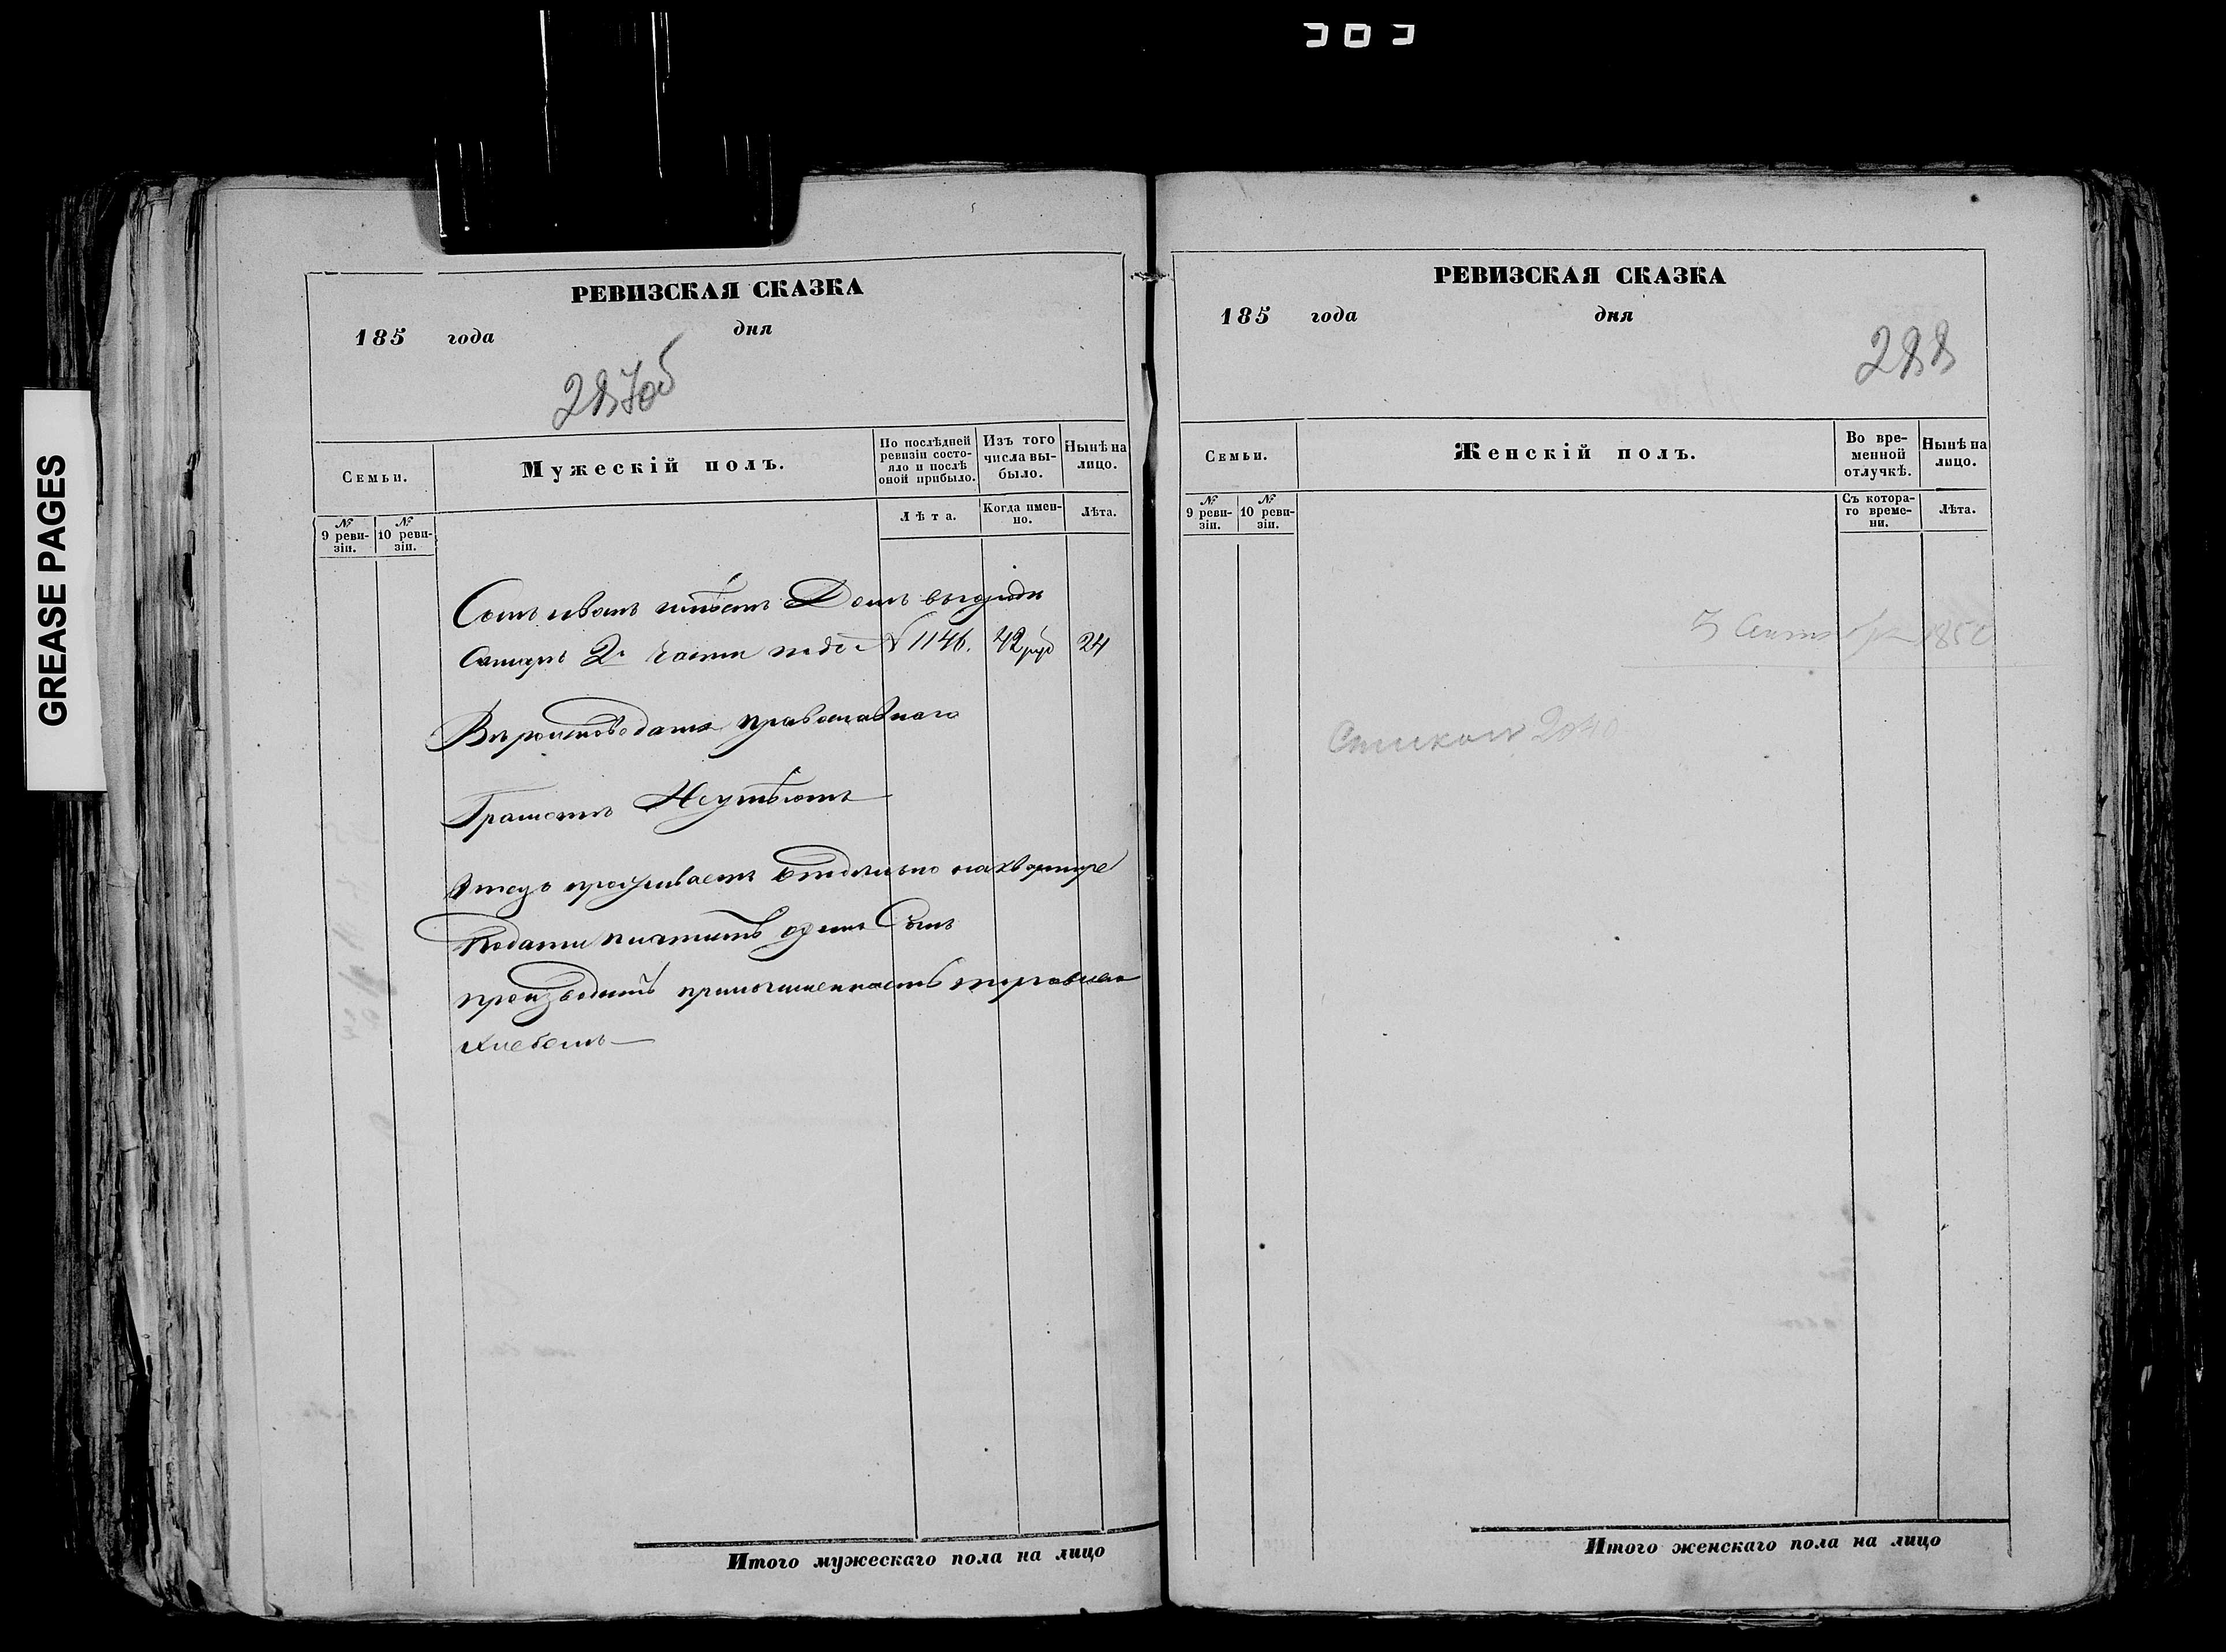 GREASE PAGES
РЕВИЗСКАЯ СКАЗКА
185 года дня
287об
Семьи.
Мужескій полъ.
По послѣдней ревизіи состояло и послѣ оной прибыло.
Изъ того числа выбыло.
Нынѣ на лицо.
№ 9 ревизіи.
№ 10 ревизіи.
Лѣта.
Когда именно.
Лѣта.
Сынъ иванъ имѣетъ Домъ въ городѣ
Самарѣ 2й части подъ № 1146. 42 руб 24
Вѣроисповѣданія православнаго
Грамотѣ Неумѣютъ
Отецъ проживаетъ Отдѣльно на квартире
Подати платитъ одинъ Сынъ
производитъ промышленность торговлею
хлебомъ
РЕВИЗСКАЯ СКАЗКА
185 года дня
288
Семьи.
Женскій полъ.
Во временной отлучкѣ.
Нынѣ на лицо.
№ 9 ревизіи.
№ 10 ревизіи.
Съ котораго времени.
Лѣта.
Сентября
Итого мужескаго пола на лицо
Итого женскаго пола на лицо